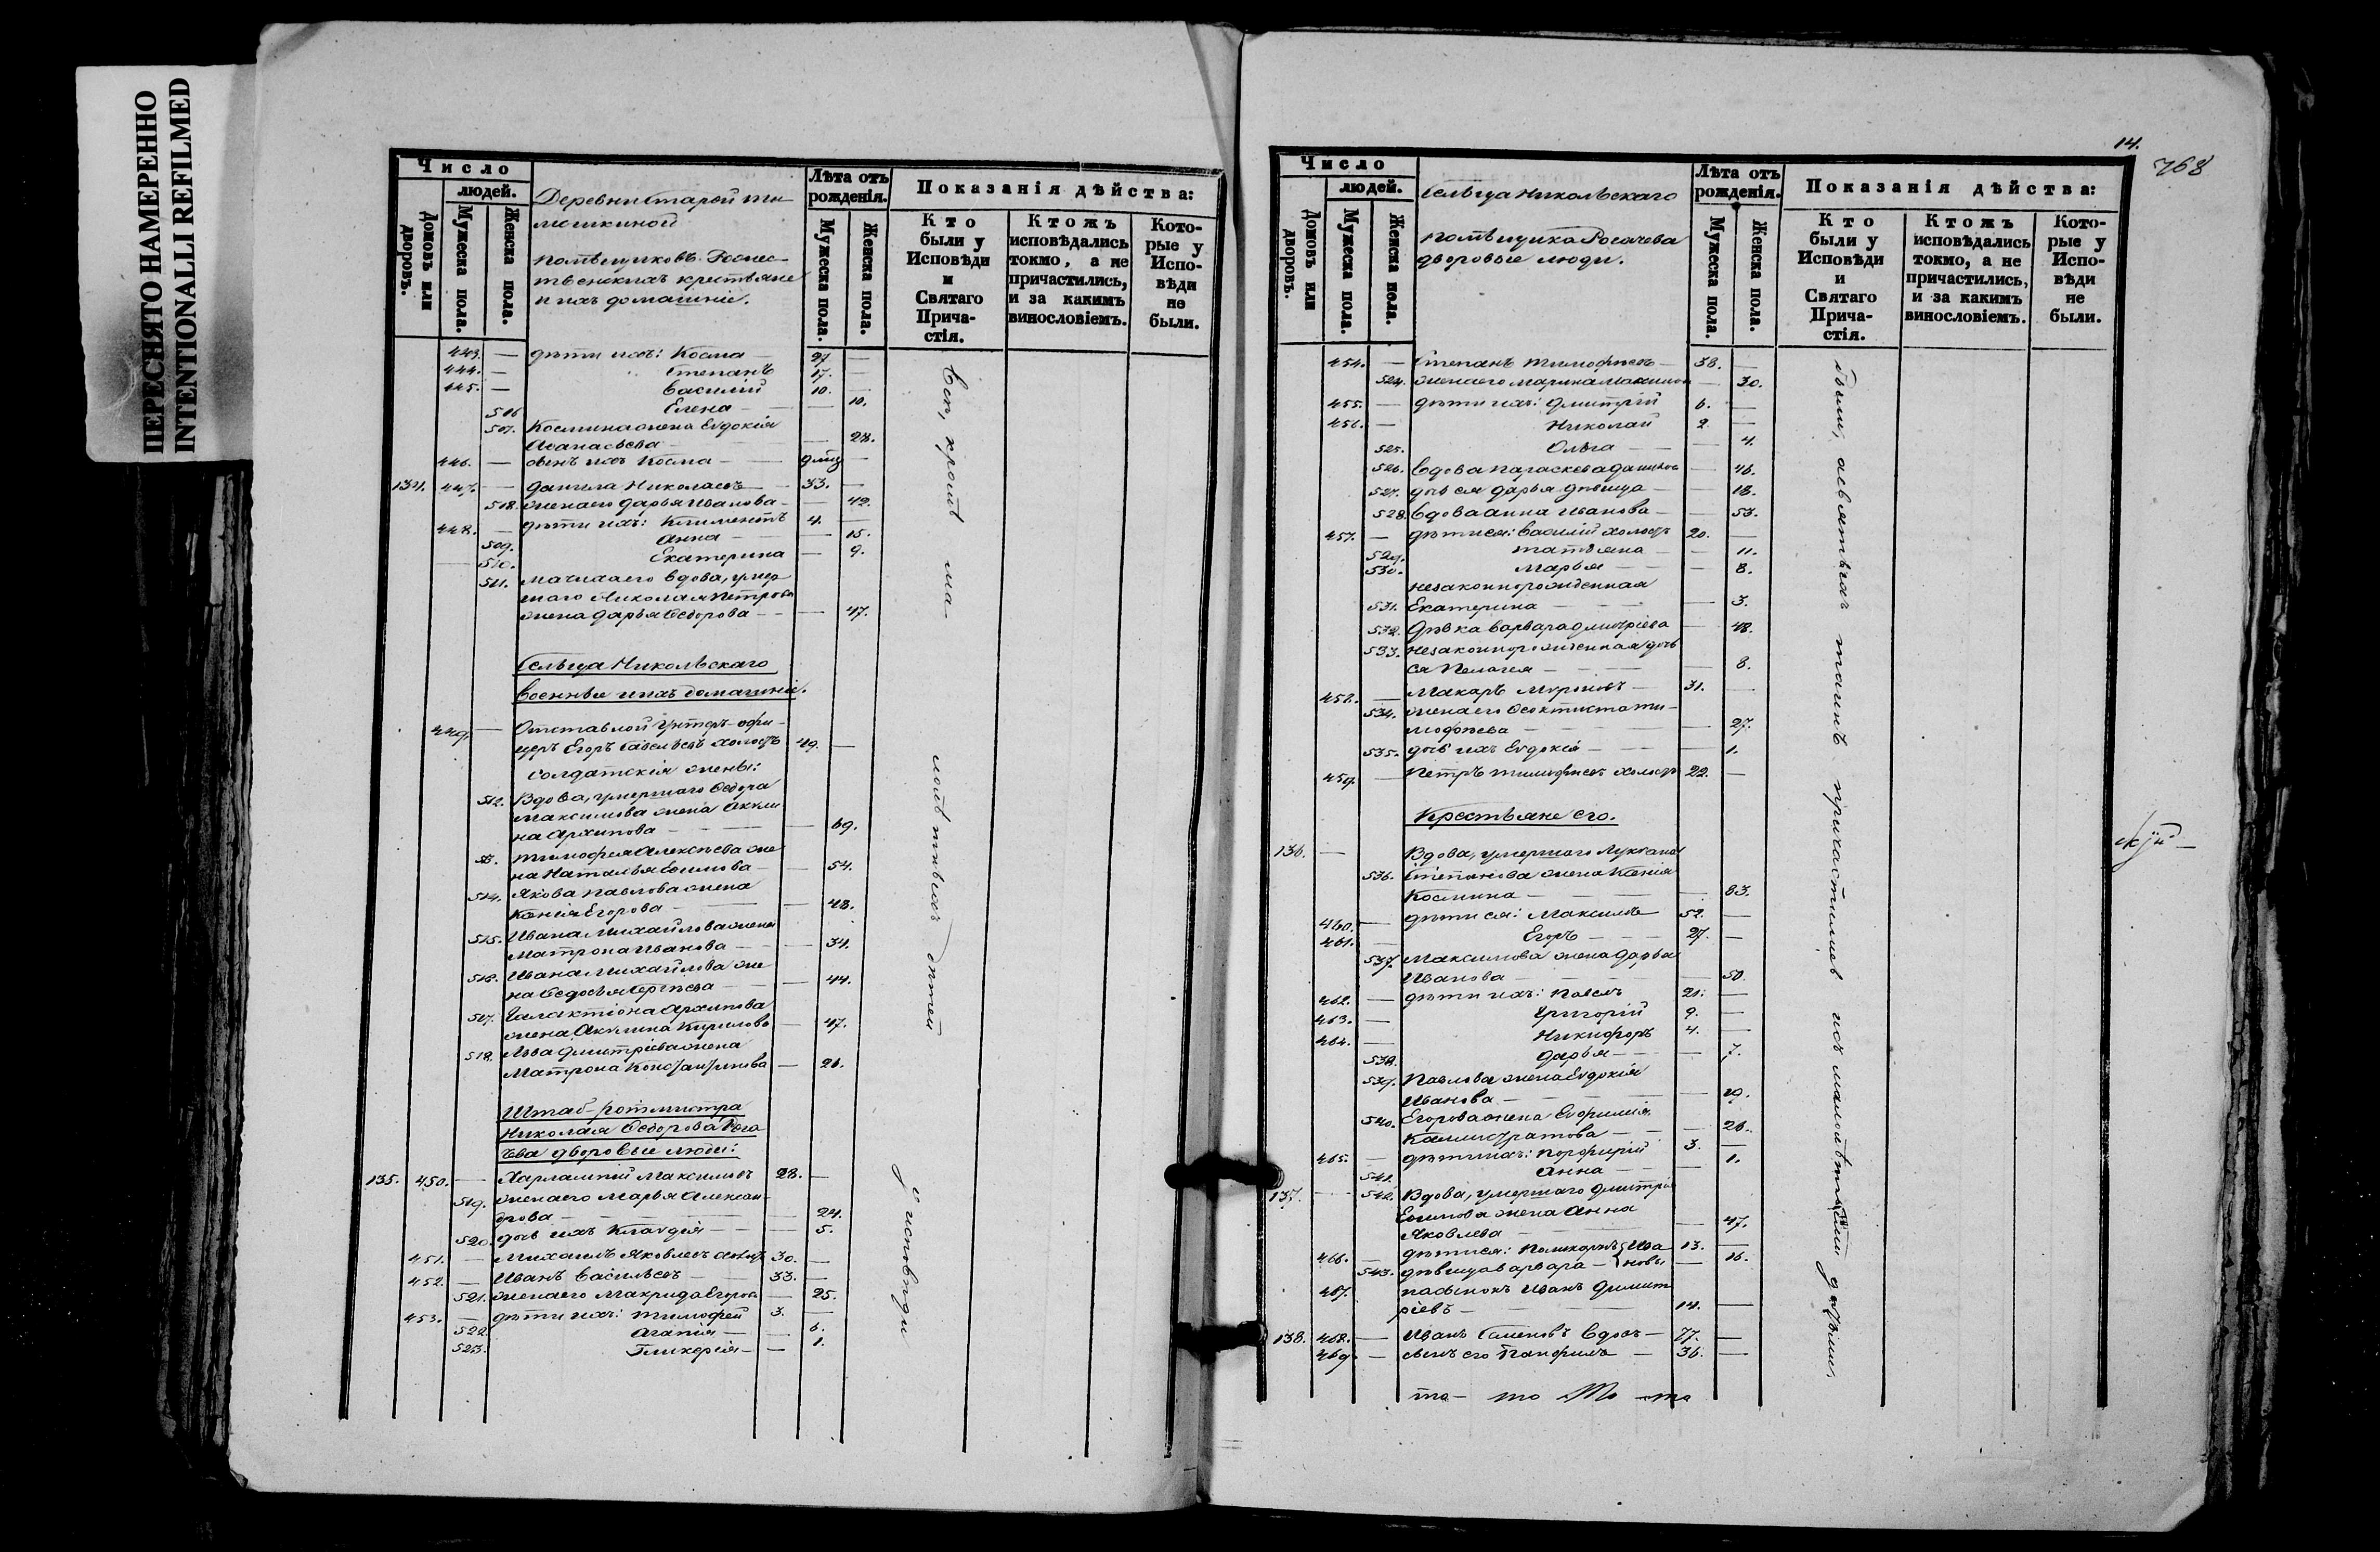 ПЕРЕСНЯТО НАМЕРЕННО
INTENTIONALLI REFILMED
Число
людей.
Домовъ или дворовъ.
Мужеска пола.
Женска пола.
Деревни Старой Ти-
мошкиной
помѣщиковъ
крестьяне
и ихъ домашніе.
Лѣта отъ рожденія.
Мужеска пола.
Женска пола.
Показанія дѣйства:
Кто были у Исповѣди и Святаго Причастія.
Ктожъ исповѣдались токмо, а не причастились, и за какимъ винословіемъ.
Которые у Исповѣди не были.
443. — дѣти ихъ: Косма — 27 —
444. — Степанъ 17. —
445. — Василій 10. —
506 Елена — — 10.
507. Космина жена Евдокія
Аѳанасьева — — 28.
446. — сынъ ихъ Косма —
134. 447. — Данила Николаевъ — 33. —
508. жена его Дарья Иванова — — 42.
448. — дѣти ихъ: Климентъ 4. —
509. Анна — — 15.
510. Екатерина — 9.
511. мачиха его вдова, умер-
шаго Николая Петрова
жена Дарья Ѳедорова — — 47.
Сельца Никольскаго
Военные и ихъ домашніе.
449. — Отставной Унтеръ-офи-
церъ Егоръ Савельевъ холостъ 49. —
Солдатскія жены:
512. Вдова, умершаго Ѳедора
Максимова жена Акули-
на Архипова — — 69.
513. Тимофея Алексѣева же
на Наталья Еѳимова — — 54.
514. Якова Павлова жена
Ксенія Егорова — — 48.
515. Ивана Михайлова жена
Матрона Иванова — — 34.
516. Ивана Михайлова же
на Ѳедосья Сергѣева — — 44.
517. Галактіона Архипова
жена Акулина Кирилова — 47.
518. Льва Дмитріева жена
Матрона Константинова — 26.
Штаб-ротмистра
Николая Ѳедорова Рога
чева дворовые люди:
135. 450. — Харлампій Максимовъ 28. —
519. жена его Марья Алексан-
дрова — — 24.
520. дочь ихъ Клавдія — — 5.
451. — Михаилъ Яковлевъ холостъ 30. —
452. — Иванъ Васильевъ — 33. —
521. жена его Макрида Егорова — 25.
453. — дѣти ихъ: Тимофей 3. —
522. Агапія — — 6.
523. Гликерія — — 1.
Всѣ, кромѣ ма-
лолѣтныхъ дѣтей
у исповѣди
14.
768
Число
людей.
Домовъ или дворовъ.
Мужеска пола.
Женска пола.
Сельца Никольскаго
помѣщика Рогачева
дворовые люди.
Лѣта отъ рожденія.
Мужеска пола.
Женска пола.
Показанія дѣйства:
Кто были у Исповѣди и Святаго Причастія.
Ктожъ исповѣдались токмо, а не причастились, и за какимъ винословіемъ.
Которые у Исповѣди не были.
454. — Степанъ Тимофѣевъ — 38. —
524. жена его Марина Максимова — 30.
455. — дѣти ихъ: Дмитрій 6. —
456. — Николай 2. —
525. Ольга — — 4.
526. Вдова Параскева Данилова — 46.
527. дочь ея Дарья дѣвица — — 18.
528. Вдова Анна Иванова — — 53.
457. — дѣти ея: Василій холостъ 20. —
529. Татьяна — — 11.
530. Марья — — 8.
незаконнорожденная
531. Екатерина — — 3.
532. Дѣвка Варвара Дмитріева — 48.
533. Незаконнорожденная дочь
ея Пелагея — — 8.
458. — Макаръ Мироновъ — 31. —
534. жена его Ѳеоктиста Ти-
мофѣева — — 27.
535. дочь ихъ Евдокія — — 1.
459. — Петръ Тимофѣевъ холостъ 22. —
Крестьяне его.
136. — Вдова, умершаго Лукьяна
536. Степанова жена Ксенія
Космина — — 83.
460. — дѣти ея: Максимъ 52. —
461. — Егоръ — 27. —
537. Максимова жена Дарья
Иванова — — 50.
462. — дѣти ихъ: Павелъ 21. —
463. — Григорій 9. —
464. — Никифоръ 4. —
538. Дарья — — 7.
539. Павлова жена Евдокія
Иванова — — 19.
540. Егорова жена Евфимія
Каллистратова — — 26.
465. — дѣти ихъ: Порфирій 3. —
541. Анна — — 1.
137. — 542. Вдова, умершаго Дмитрія
Еѳимова жена Анна
Яковлева — — 47.
466. — дѣти ея: Поликарпъ } Ива 13. —
543. дѣвица Варвара — } новы — 16.
467. пасынокъ Иванъ Димит
ріевъ — 14. —
138. 468. — Иванъ Семеновъ вдовъ — 77. —
469. — сынъ его Панфилъ — 36. —
были, а святыхъ таинъ причастились и съ малолѣтными дѣтьми.